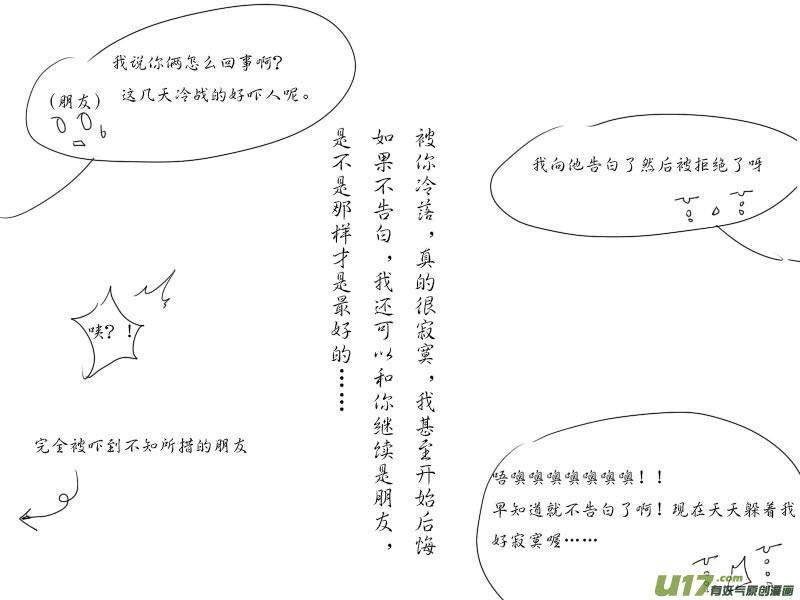 我说你俩怎么回事啊？
这几天冷战的好吓人呢。
(朋友)
我向他告白了然后被拒绝了呀
咦？！
被你冷落，真的很寂寞，我甚至开始后悔
如果不告白，我还可以和你继续是朋友，
是不是那样才是最好的……
完全被吓到不知所措的朋友
唔噢噢噢噢噢噢！！
早知道就不告白了啊！现在天天躲着我
好寂寞喔……
U17.com
有妖气原创漫画